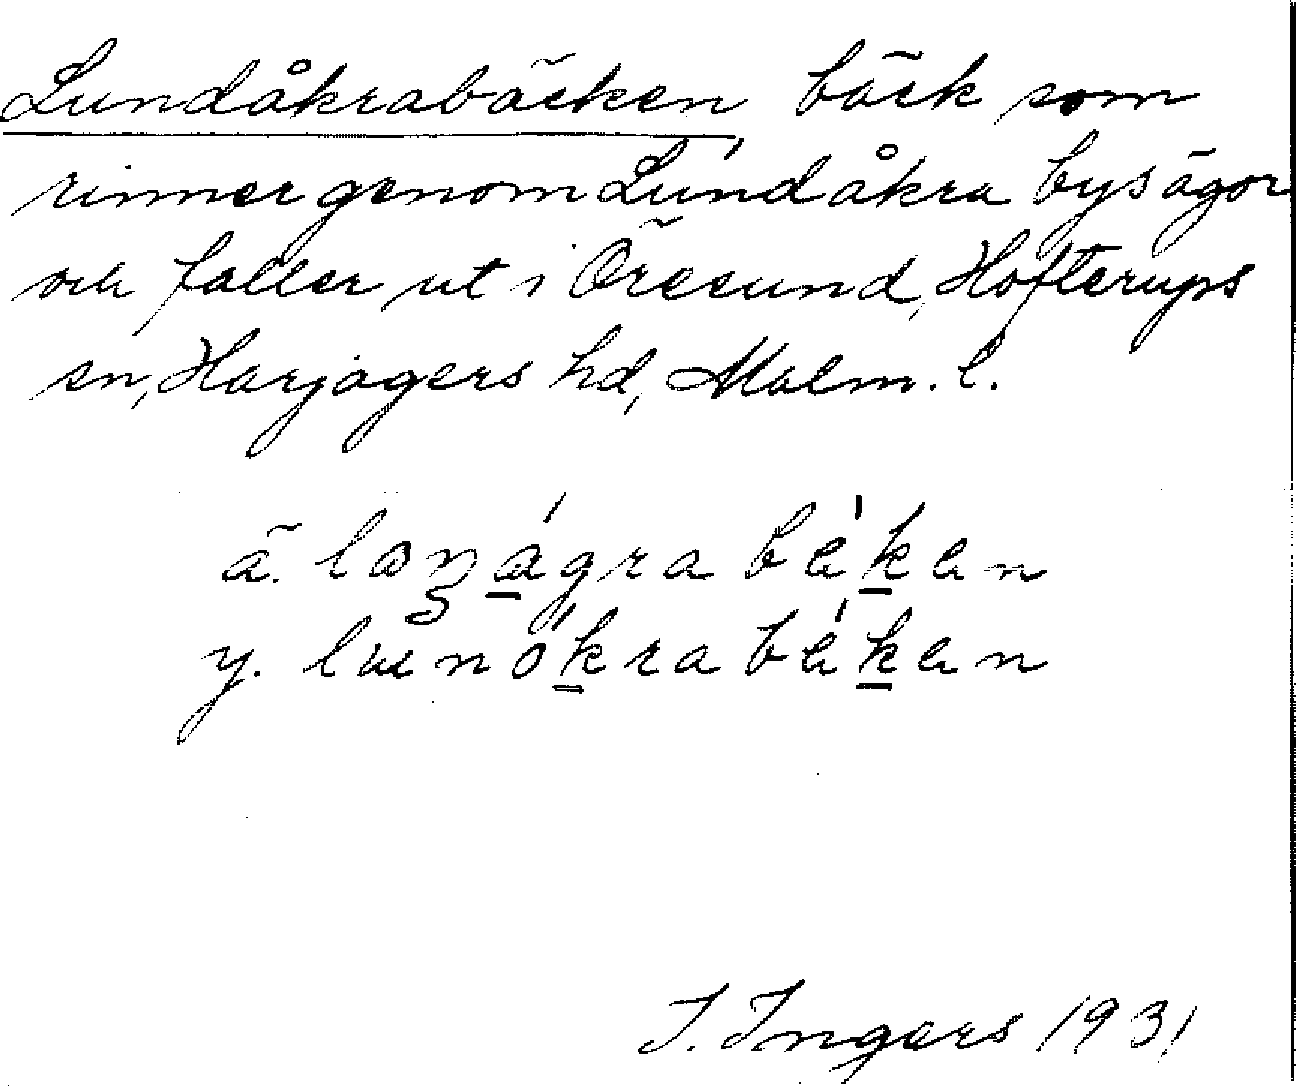 Lundåkrabäcken, bäck som
rinner genom Lundåkra bys ägor
och faller ut i Öresund, Hofterups
sn, Harjagers hd, Malm. l.
ä.
y.
I. Ingers 1931